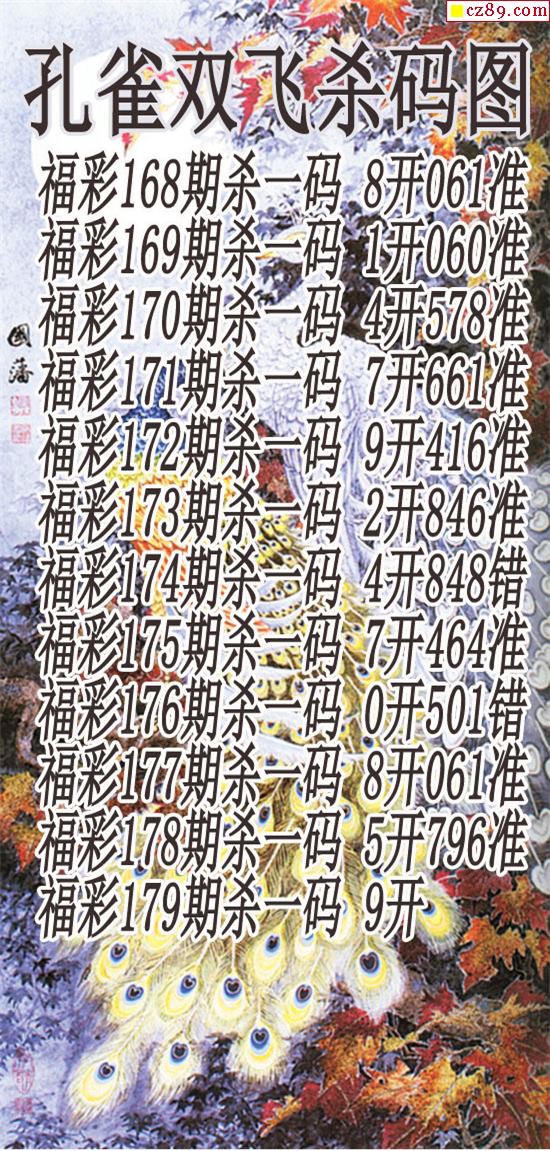 cz89.com
孔雀双飞杀码图
福彩168期杀一码 8开061准
福彩169期杀一码 1开060准
福彩170期杀一码 4开578准
福彩171期杀一码 7开661准
福彩172期杀一码 9开416准
福彩173期杀一码 2开846准
福彩174期杀一码 4开848错
福彩175期杀一码 7开464准
福彩176期杀一码 0开501错
福彩177期杀一码 8开061准
福彩178期杀一码 5开796准
福彩179期杀一码 9开
國藩